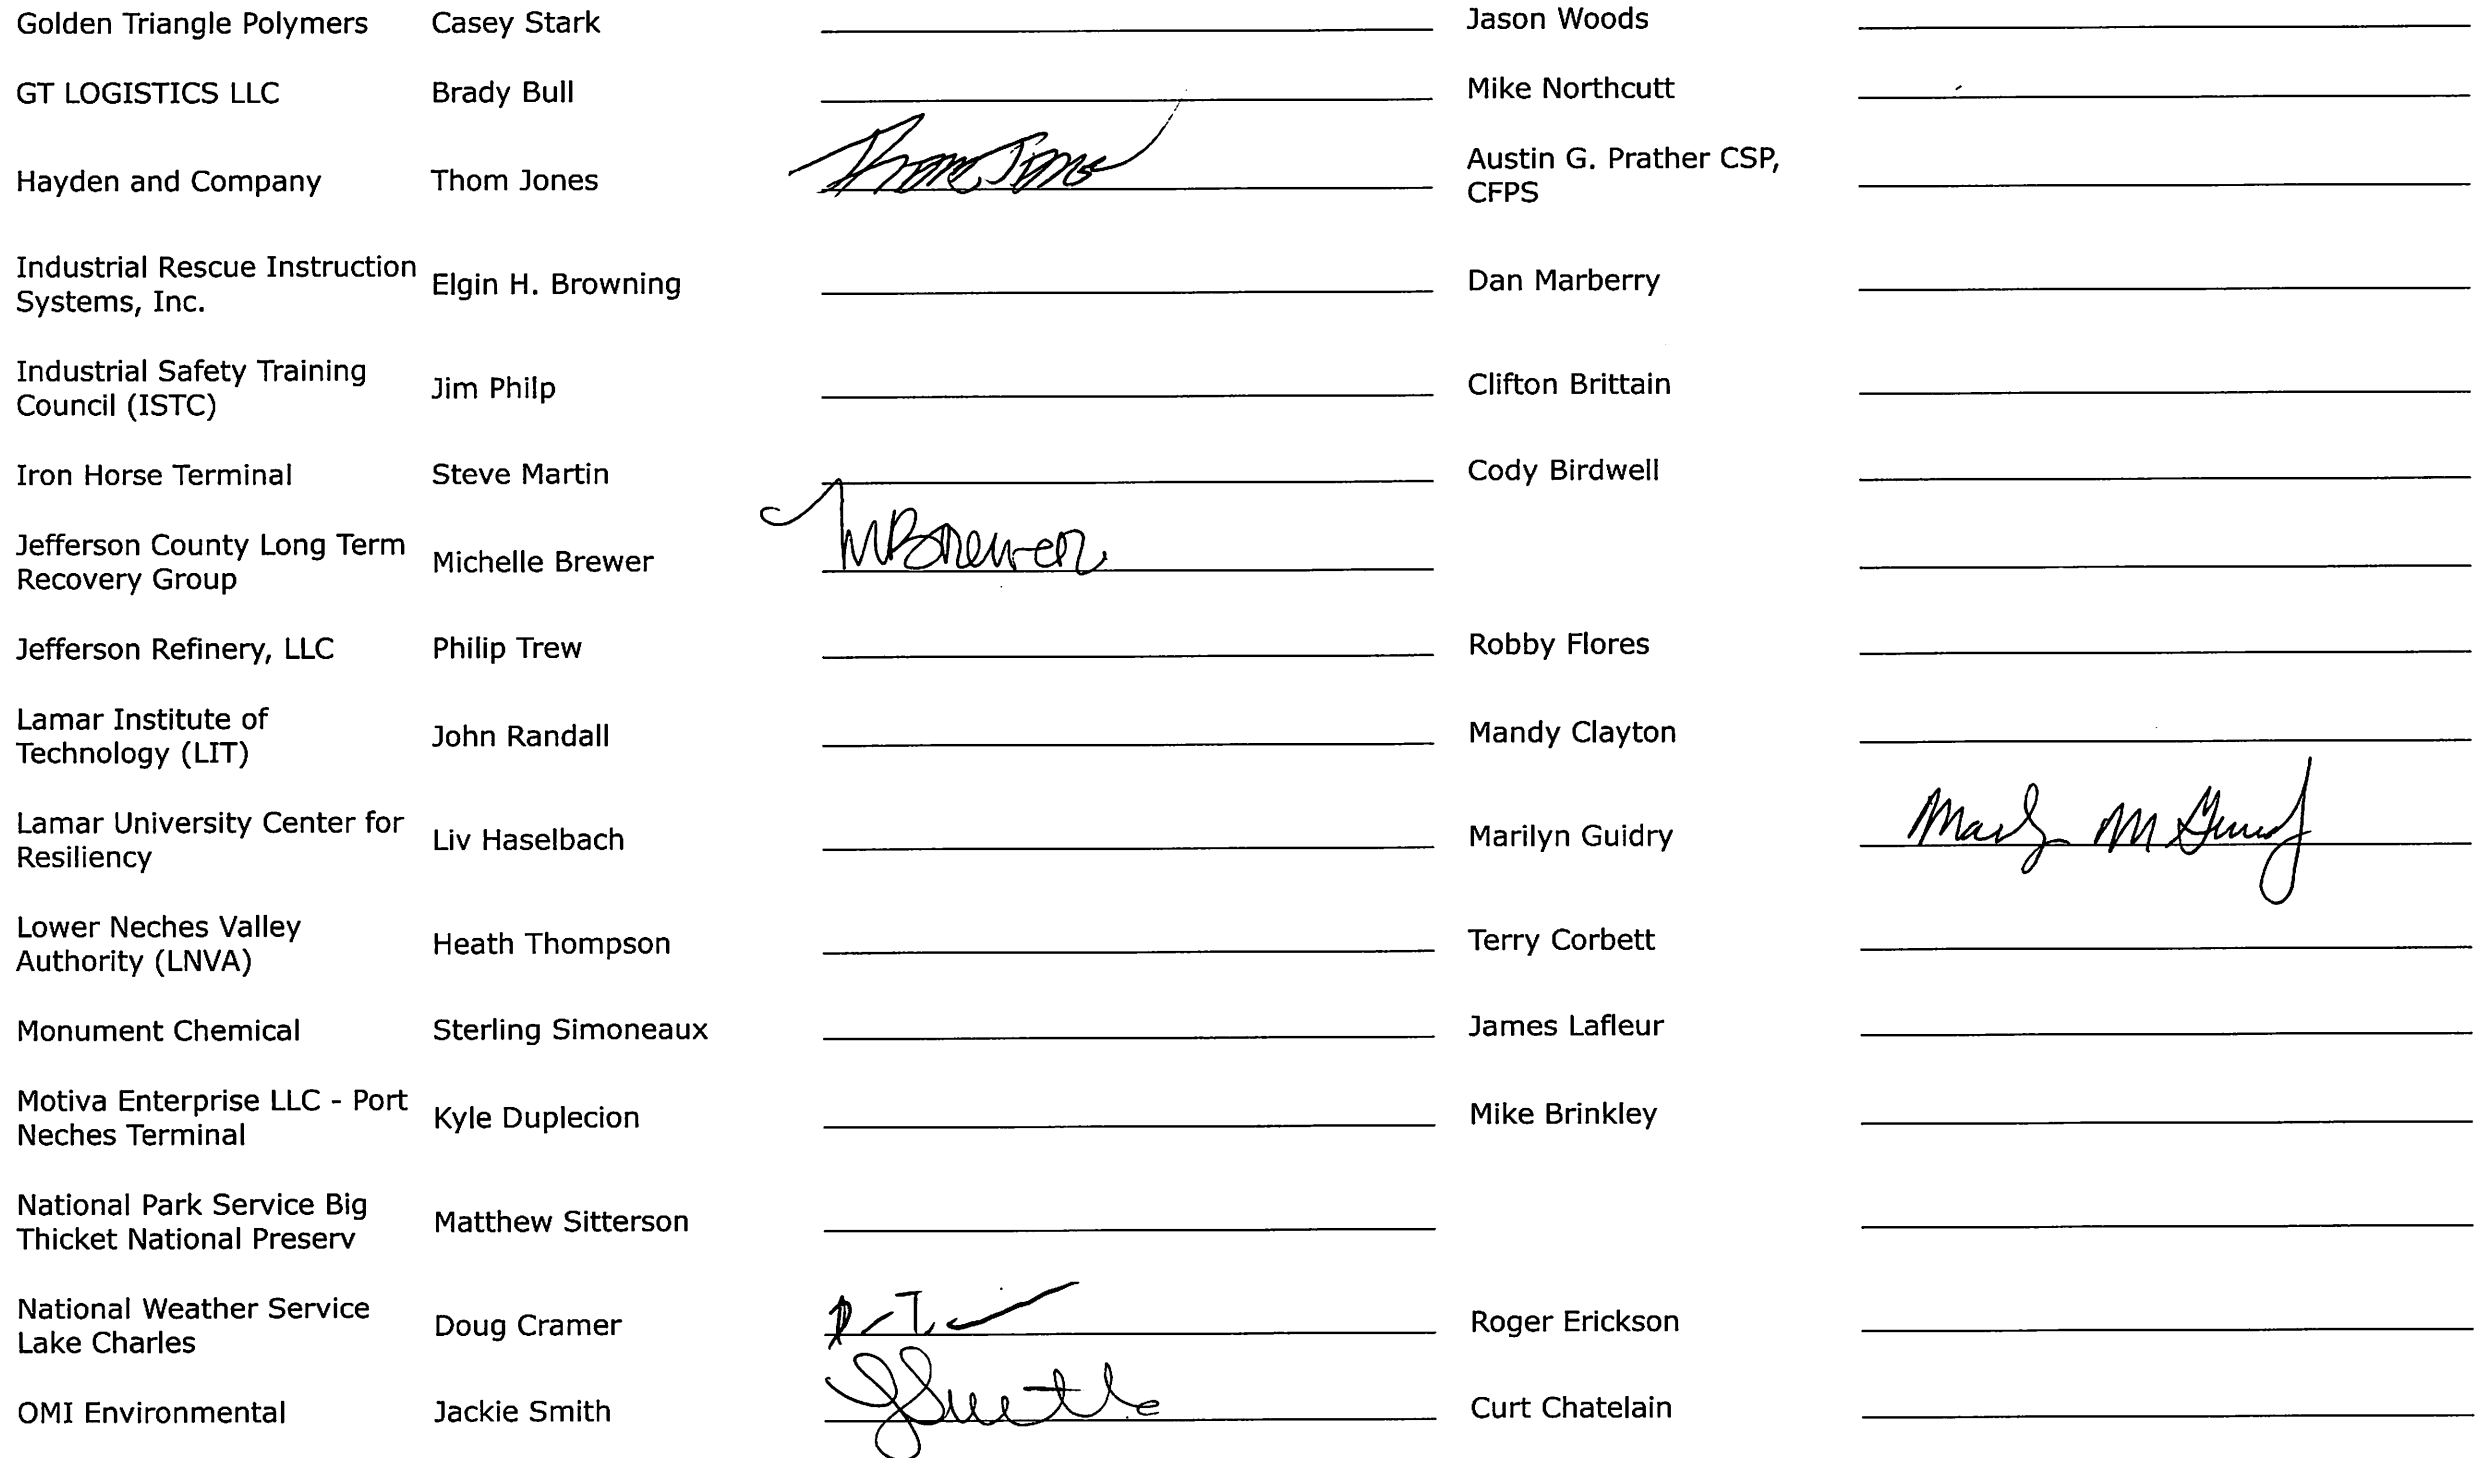 Golden Triangle Polymers Casey Stark Jason Woods
GT LOGISTICS LLC Brady Bull Mike Northcutt
Hayden and Company Thom Jones Thom Jones Austin G. Prather CSP,
CFPS
Industrial Rescue Instruction
Systems, Inc. Elgin H. Browning Dan Marberry
Industrial Safety Training
Council (ISTC) Jim Philp Clifton Brittain
Iron Horse Terminal Steve Martin Cody Birdwell
Jefferson County Long Term
Recovery Group Michelle Brewer MBrewer
Jefferson Refinery, LLC Philip Trew Robby Flores
Lamar Institute of
Technology (LIT) John Randall Mandy Clayton
Lamar University Center for
Resiliency Liv Haselbach Marilyn Guidry
Lower Neches Valley
Authority (LNVA) Heath Thompson Terry Corbett
Monument Chemical Sterling Simoneaux James Lafleur
Motiva Enterprise LLC - Port
Neches Terminal Kyle Duplecion Mike Brinkley
National Park Service Big
Thicket National Preserv Matthew Sitterson
National Weather Service
Lake Charles Doug Cramer Roger Erickson
OMI Environmental Jackie Smith Curt Chatelain